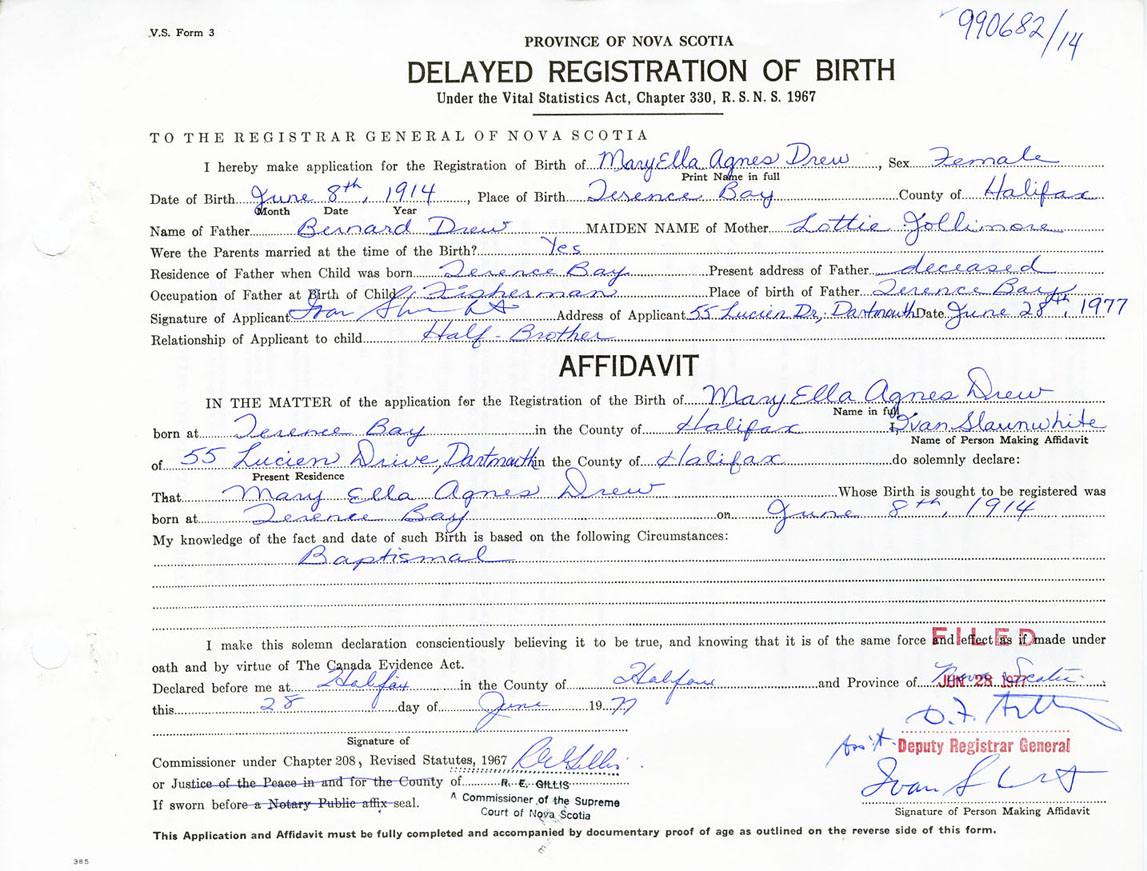 V.S. Form 3
990682/14
PROVINCE OF NOVA SCOTIA
DELAYED REGISTRATION OF BIRTH
Under the Vital Statistics Act, Chapter 330, R. S. N. S. 1967
TO THE REGISTRAR GENERAL OF NOVA SCOTIA
I hereby make application for the Registration of Birth of Mary Ella Agnes Drew, Sex Female
Print Name in full
Date of Birth June 8th, 1914, Place of Birth Terence Bay County of Halifax
Month Date Year
Name of Father Bernard Drew MAIDEN NAME of Mother Lottie Jollimore
Were the Parents married at the time of the Birth? Yes
Residence of Father when Child was born Terence Bay Present address of Father deceased
Occupation of Father at Birth of Child Fisherman Place of birth of Father Terence Bay
Signature of Applicant Ivan Address of Applicant 55 Lucien Dr, Dartmouth Date June 28th, 1977
Relationship of Applicant to child Half-Brother
AFFIDAVIT
IN THE MATTER of the application for the Registration of the Birth of Mary Ella Agnes Drew
Name in full
born at Terence Bay in the County of Halifax I, Ivan Slaunwhite
Name of Person Making Affidavit
of 55 Lucien Drive, Dartmouth in the County of Halifax do solemnly declare:
Present Residence
That Mary Ella Agnes Drew Whose Birth is sought to be registered was
born at Terence Bay on June 8th, 1914
My knowledge of the fact and date of such Birth is based on the following Circumstances:
Baptismal
I make this solemn declaration conscientiously believing it to be true, and knowing that it is of the same force and effect as if made under
FILED
oath and by virtue of The Canada Evidence Act.
Declared before me at Halifax in the County of Halifax and Province of Nova Scotia.
JUN 28 1977
this 28 day of June 1977
Asst. Deputy Registrar General
Signature of
Commissioner under Chapter 208, Revised Statutes, 1967 R E Gillis
or Justice of the Peace in and for the County of R. E. GILLIS
If sworn before a Notary Public affix seal. ^ Commissioner of the Supreme
Court of Nova Scotia
Ivan
Signature of Person Making Affidavit
This Application and Affidavit must be fully completed and accompanied by documentary proof of age as outlined on the reverse side of this form.
385